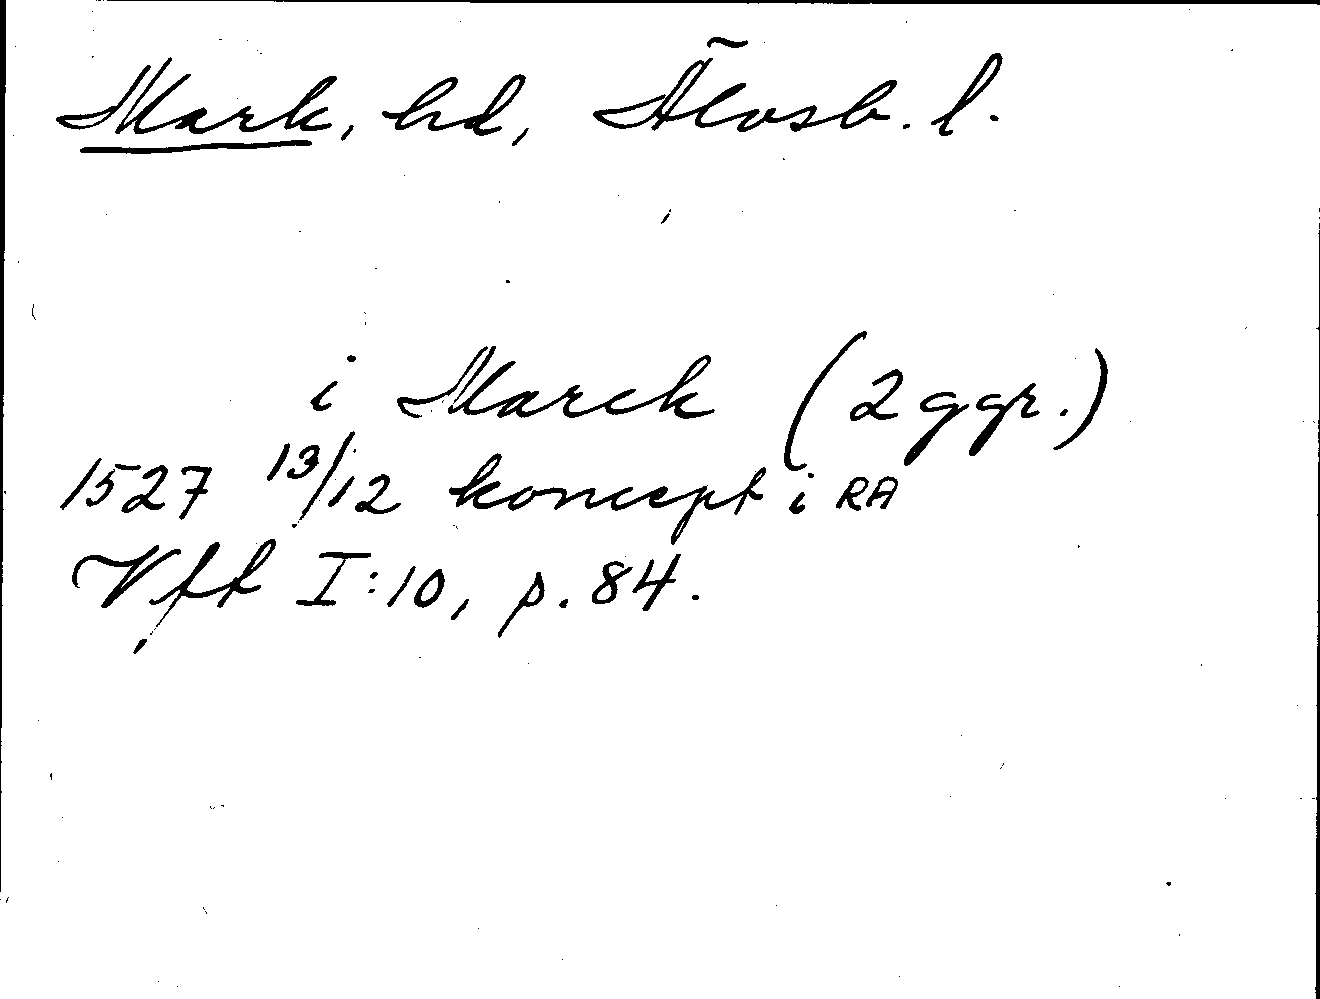 Mark, hd, Älvsb. l.
i Marck (2 ggr.)
1527 13/12 koncept i RA
Vft I:10, p. 84.